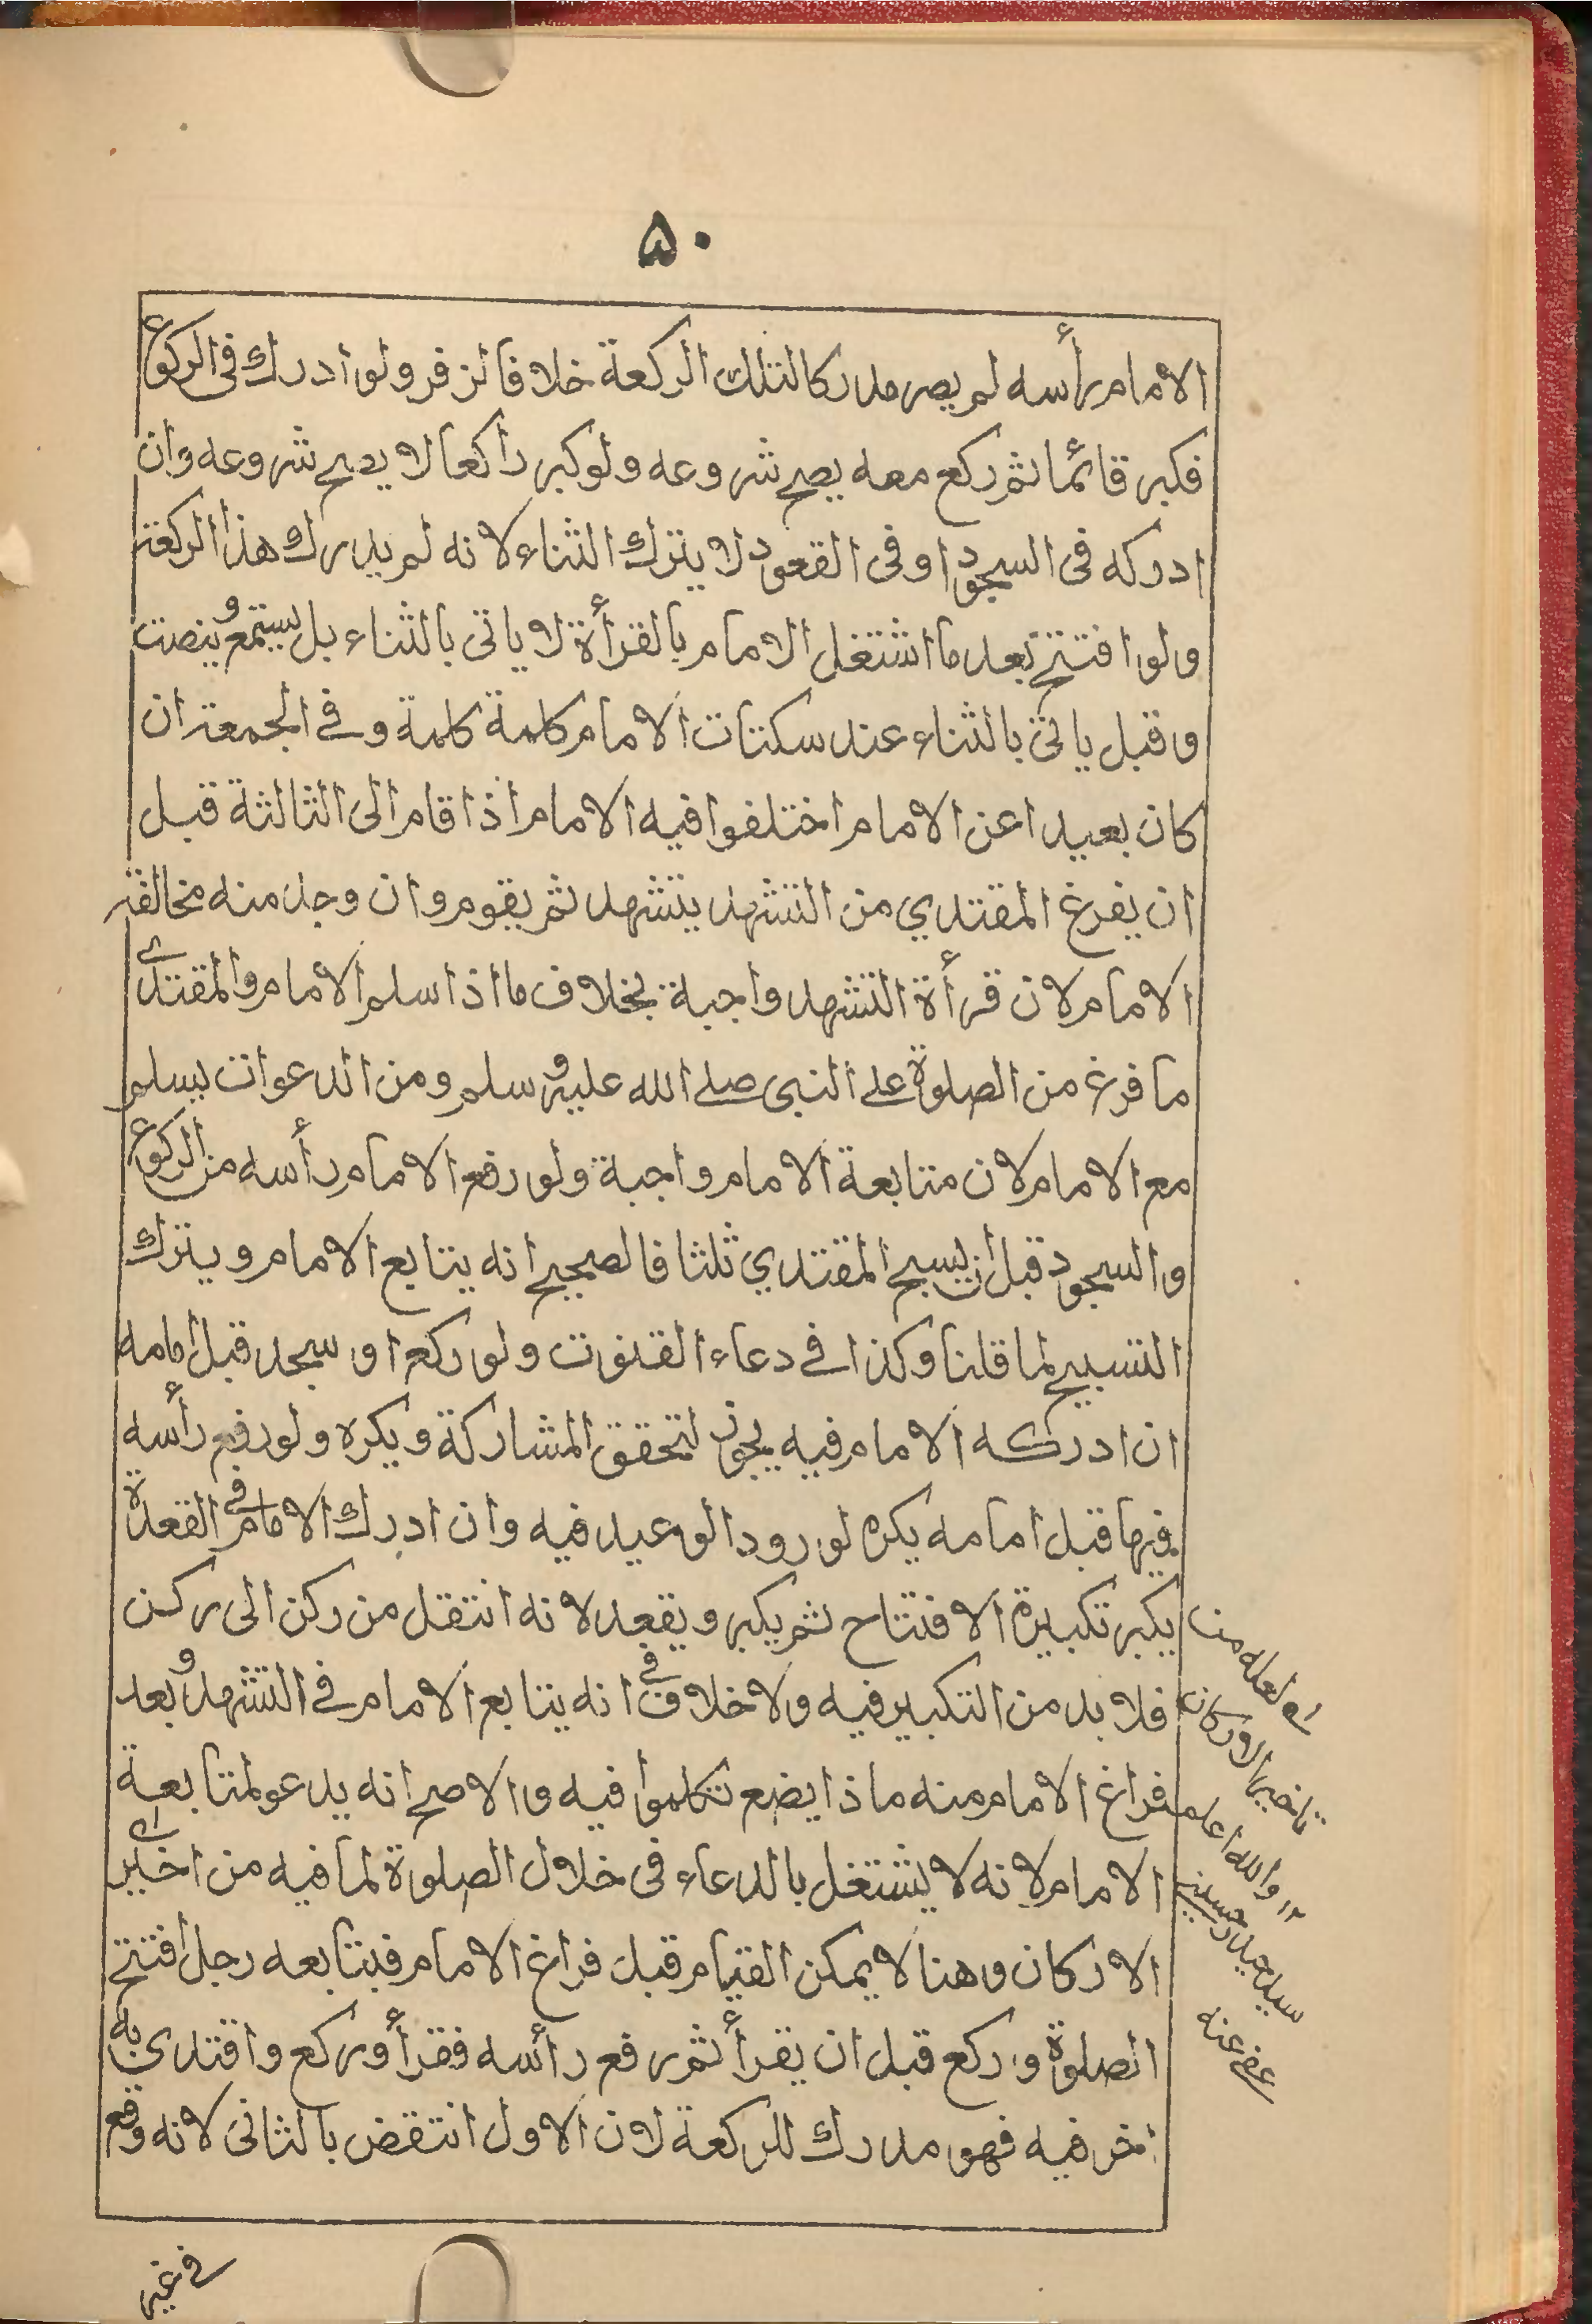 ۵۰
الامام رأسه لم يصر مدركا لتلك الركعة خلافا لزفر ولو ادرك فى الركوع
فكبر قائما ثم ركع معه يصح شروعه ولو كبر راكعا لا يصح شروعه وان
ادركه فى السجود او فى القعود لا يترك الثناء لانه لم يدرك هذا الركعة
ولو افتتح بعد ما اشتغل الامام بالقرأة لا ياتى بالثناء بل يستمع و ينصت
وقبل ياتى بالثناء عند سكتات الامام كلمة كلمة وفے الجمعة ان
كان بعيدا عن الامام اختلفوا فيه الامام اذا قام الى الثالثة قبل
ان يفرغ المقتدي من التشهد يتشهد ثم يقوم وان وجد منه مخالفة
الامام لان قرأة التشهد واجبة بخلاف ما اذا سلم الامام والمقتدے
ما فرغ من الصلوة علے النبى صلے الله عليه و سلم ومن الدعوات يسلم
مع الامام لان متابعة الامام واجبة ولو رفع الامام رأسه من الركوع
والسجود قبل ان يسبح المقتدي ثلثا فالصحيح انه يتابع الامام ويترك
التسبيح لما قلنا وكذا فے دعاء القنوت ولو ركع او سجد قبل امامه
ان ادركه الامام فيه يجوز لتحقق المشاركة ويكره ولو رفع رأسه
فيها قبل امامه يكره لورود الوعيد فيه وان ادرك الامام فے القعدة
يكبر تكبيرة الافتتاح ثم يكبر ويقعد لانه انتقل من ركن الى ركن
فلا بد من التكبير فيه ولا خلاف فے انه يتابع الامام فے التشهد و بعد
فراغ الامام منه ماذا يضع تكلموا فيه والاصح انه يدعو لمتابعة
الامام لانه لا يشتغل بالدعاء فى خلال الصلوة لما فيه من اخير اے
الاركان وهنا لا يمكن القيام قبل فراغ الامام فيتابعه رجل افتتح
الصلوة وركع قبل ان يقرأ ثم رفع رأسه فقرأ وركع واقتدى به
اخر فيه فهو مدرك للركعة لان الاول انتقض بالثانى لانه وقع
لعله من
تاخير الاركان
۱۲ والله اعلم
سيد حيدر حسين
عفے عنه
فے غير